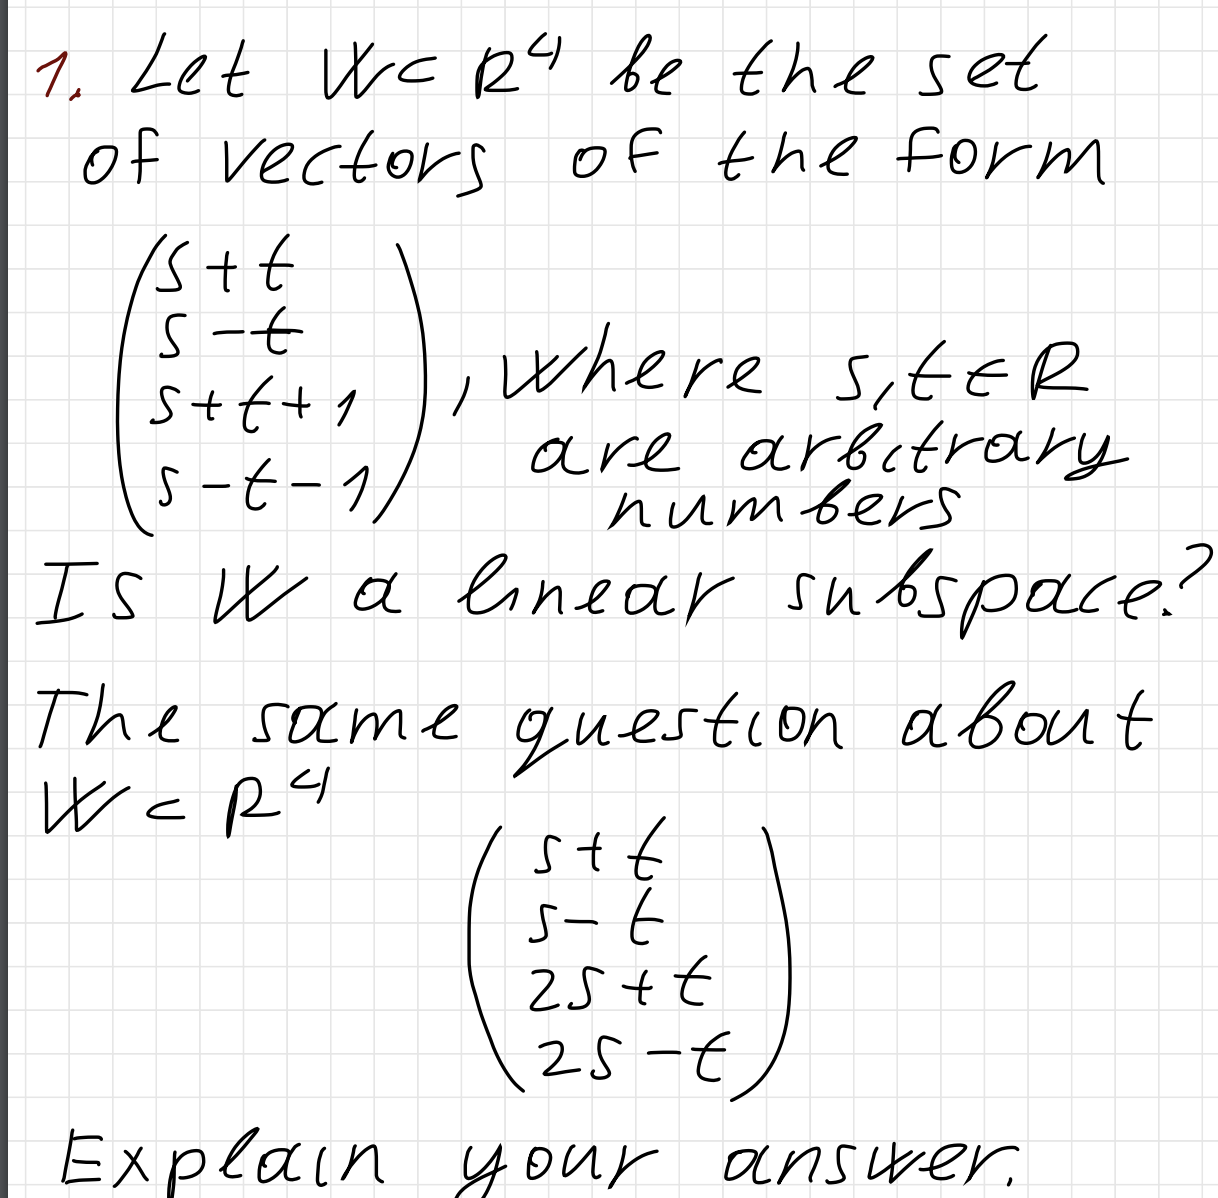 1. Let W⊂R⁴ be the set
of vectors of the form
s+t
s-t
s+t+1
s-t-1
, where s,t∈R
are arbitrary
numbers
Is W a linear subspace?
The same question about
W⊂R⁴
s+t
s-t
2s+t
2s-t
Explain your answer.